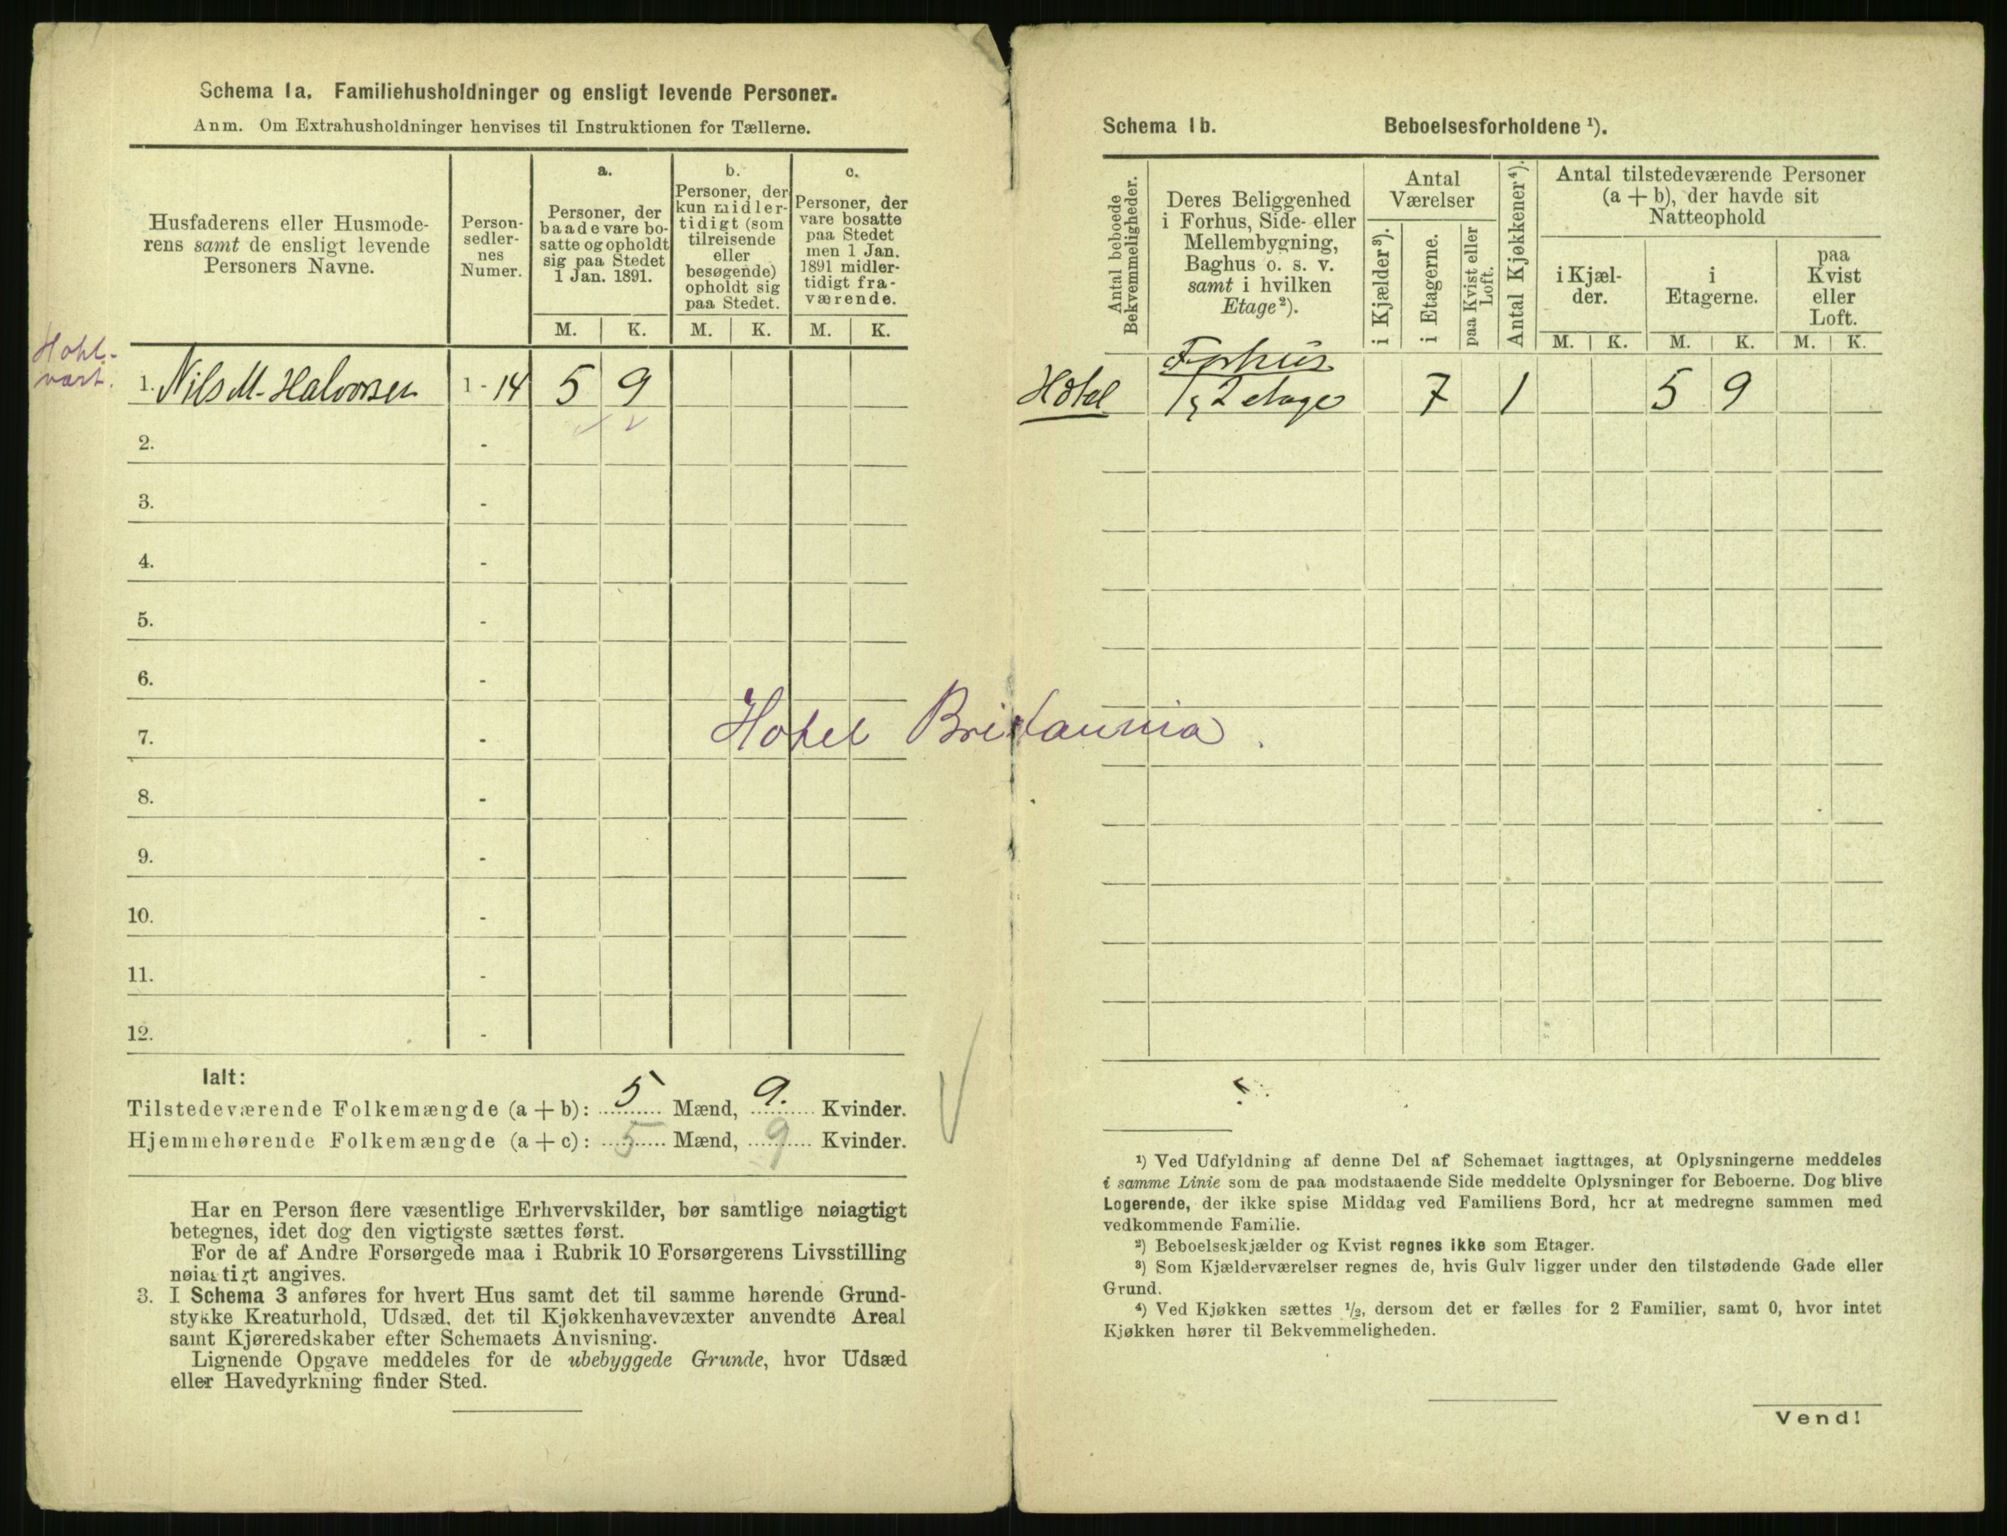 Schema 1a. Familiehusholdninger og ensligt levende Personer.
Anm. Om Extrahusholdninger henvises til Instruktionen for Tællerne.
Husfaderens eller Husmode-
rens samt de ensligt levende
Personers Navne.
Person-
sedler-
nes
Numer.
a.
Personer, der
baade vare bo-
satte og opholdt
sig paa Stedet
1 Jan. 1891.
b.
Personer, der
kun midler-
tidigt (som
tilreisende
eller
besøgende)
opholdt sig
paa Stedet.
c.
Personer, der
vare bosatte
paa Stedet
men 1 Jan.
1891 midler-
tidigt fra-
værende.
M. K. M. K. M. K.
Hotel-
vært.
1. Nils M. Halvorsen 1 - 14 5 9
2. -
3. -
4. -
5. -
6. -
7. -
8. -
9. -
10. -
11. -
12. -
Hotel Britannia.
Ialt:
Tilstedeværende Folkemængde (a + b): 5 Mænd, 9. Kvinder.
Hjemmehørende Folkemængde (a + c): 5 Mænd, 9 Kvinder.
Har en Person flere væsentlige Erhvervskilder, bør samtlige nøiagtigt
betegnes, idet dog den vigtigste sættes først.
For de af Andre Forsørgede maa i Rubrik 10 Forsørgerens Livsstilling
nøiagtigt angives.
3. I Schema 3 anføres for hvert Hus samt det til samme hørende Grund-
stykke Kreaturhold, Udsæd, det til Kjøkkenhavevæxter anvendte Areal
samt Kjøreredskaber efter Schemaets Anvisning.
Lignende Opgave meddeles for de ubebyggede Grunde, hvor Udsæd
eller Havedyrkning finder Sted.
Schema 1b. Beboelsesforholdene ¹).
Antal beboede
Bekvemmeligheder.
Deres Beliggenhed
i Forhus, Side- eller
Mellembygning,
Baghus o. s. v.
samt i hvilken
Etage²).
Antal
Værelser
i Kjælder³).
i Etagerne.
paa Kvist eller
Loft.
Antal Kjøkkener⁴).
Antal tilstedeværende Personer
(a + b), der havde sit
Natteophold
i Kjæl-
der.
i
Etagerne.
paa
Kvist
eller
Loft.
M. K. M. K. M. K.
Forhus
Hotel 1, 2 etage 7 1 5 9
¹) Ved Udfyldning af denne Del af Schemaet iagttages, at Oplysningerne meddeles
i samme Linie som de paa modstaaende Side meddelte Oplysninger for Beboerne. Dog blive
Logerende, der ikke spise Middag ved Familiens Bord, her at medregne sammen med
vedkommende Familie.
²) Beboelseskjælder og Kvist regnes ikke som Etager.
³) Som Kjælderværelser regnes de, hvis Gulv ligger under den tilstødende Gade eller
Grund.
⁴) Ved Kjøkken sættes ½, dersom det er fælles for 2 Familier, samt 0, hvor intet
Kjøkken hører til Bekvemmeligheden.
Vend!